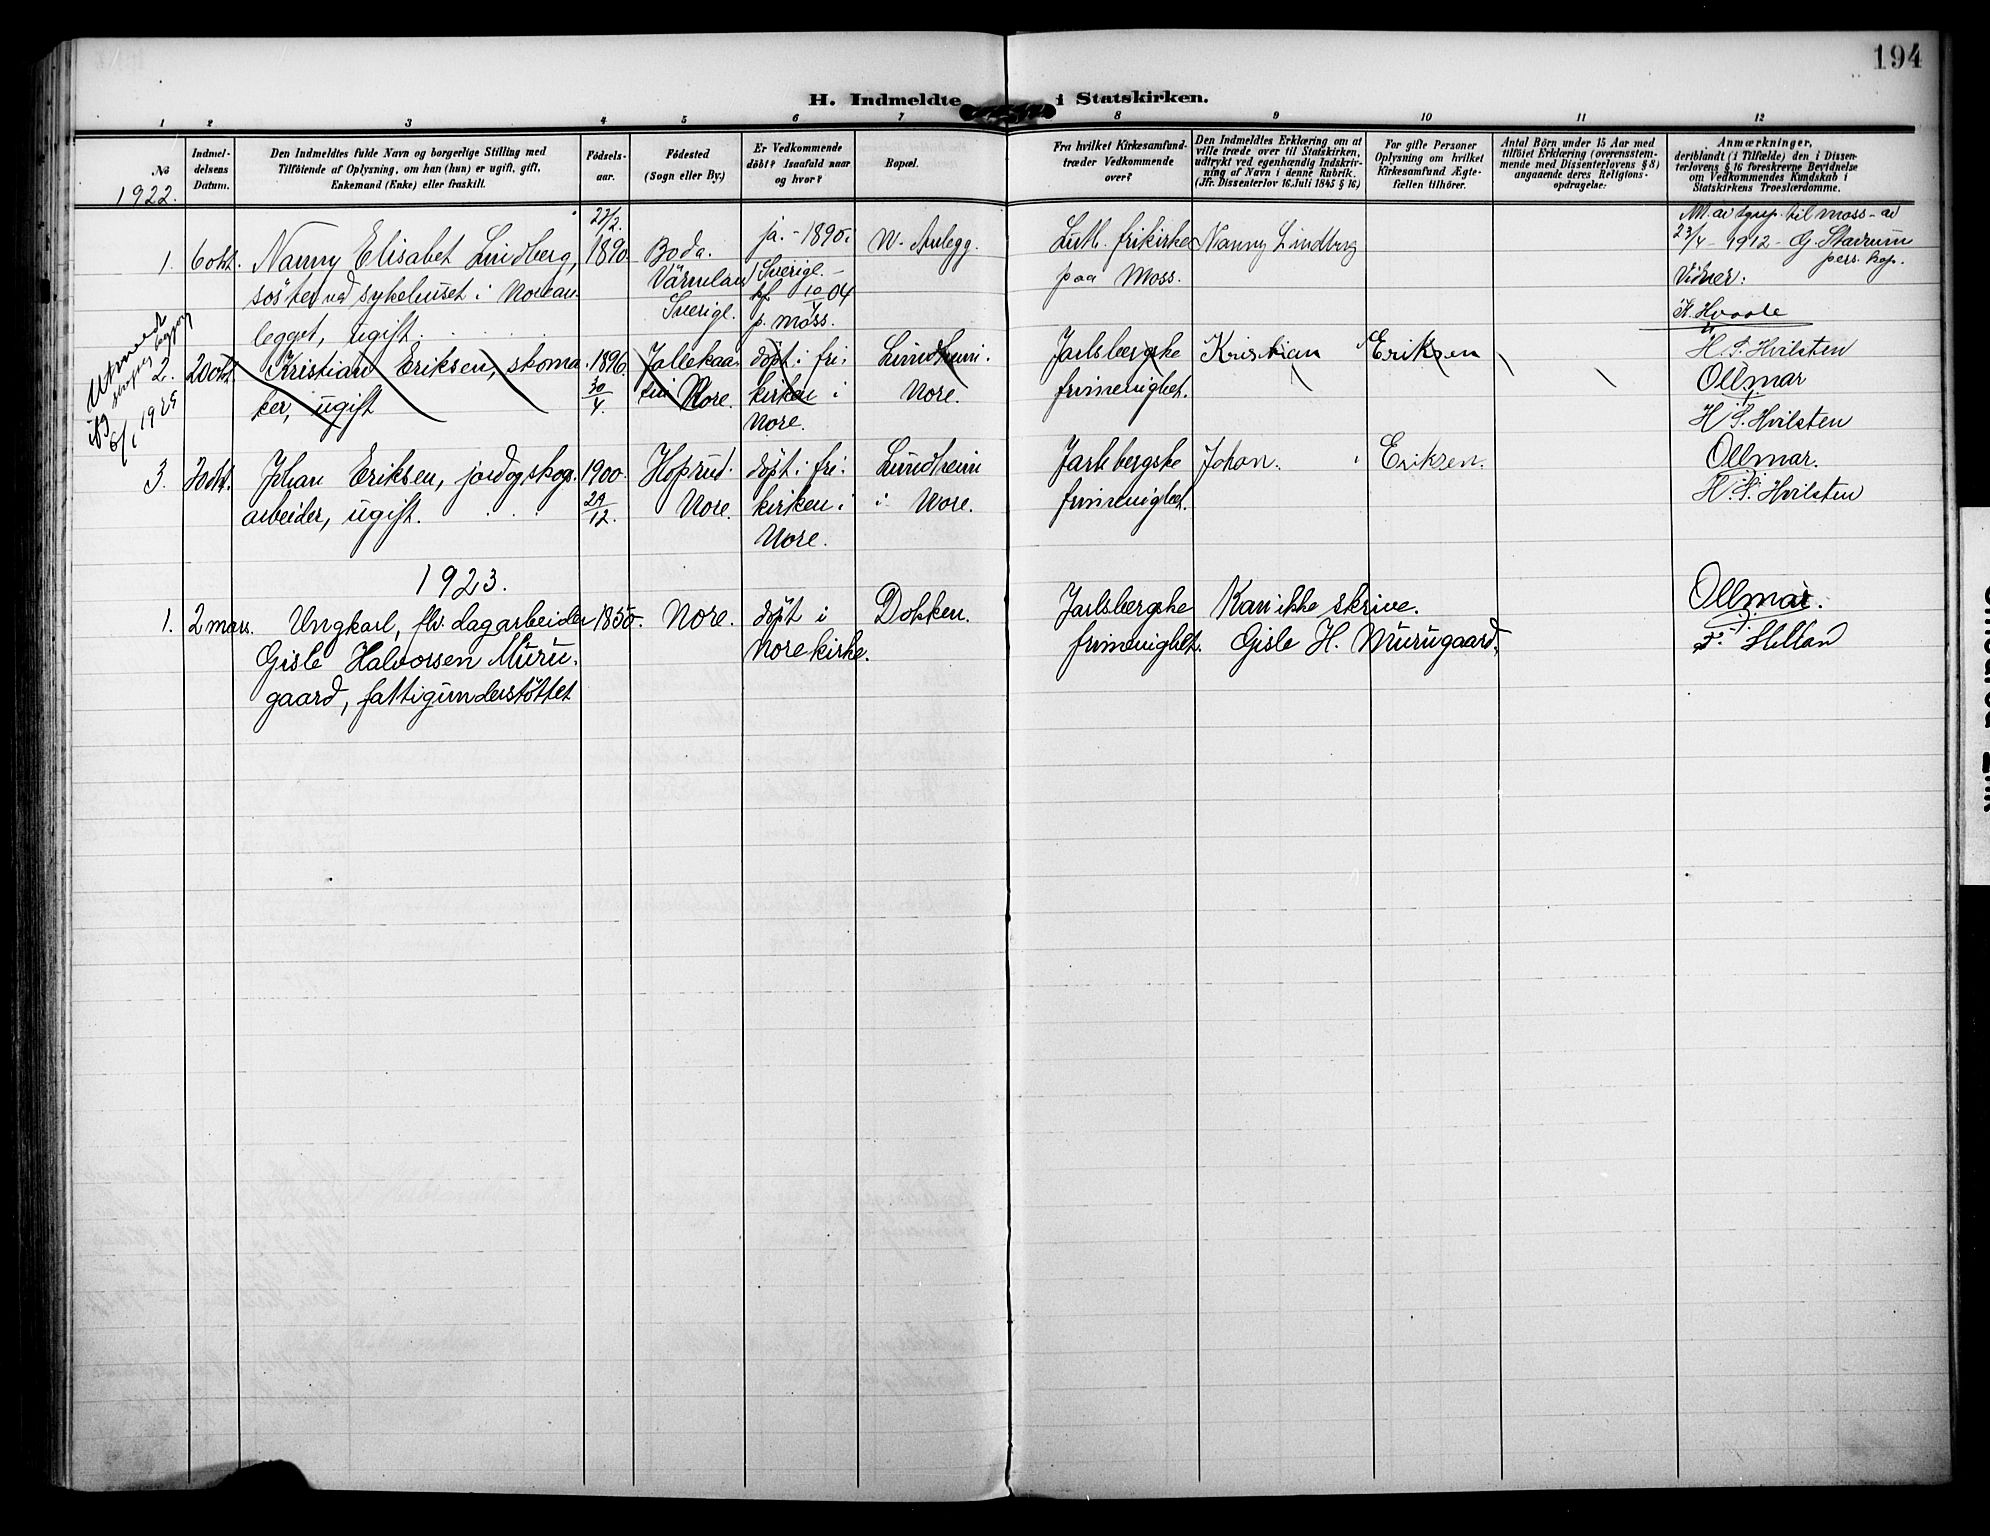 194
H. Indmeldte i Statskirken.
1 2 3 4 5 6 7 8 9 10 11 12
No
1922.
Indmel-
delsens
Datum.
Den Indmeldtes fulde Navn og borgerlige Stilling med
Tilföiende af Oplysning, om han (hun) er ugift, gift,
Enkemand (Enke) eller fraskilt.
Födsels-
aar.
Födested
(Sogn eller By.)
Er Vedkommende
döbt? Isaafald naar
og hvor?
Bopæl.
Fra hvilket Kirkesamfund-
træder Vedkommende
over?
Den Indmeldtes Erklæring om at
ville træde over til Statskirken,
udtrykt ved egenhændig Indskriv-
ning af Navn i denne Rubrik.
(Jfr. Dissenterlov 16.Juli 1845 § 16)
For gifte Personer
Oplysning om hvilket
Kirkesamfund Ægte-
fællen tilhörer.
Antal Börn under 15 Aar med
tilföiet Erklæring (overensstem-
mende med Dissenterlovens § 8)
angaaende deres Religions-
opdragelse:
Anmærkninger,
deriblandt (i Tilfælde) den i Dissen-
terlovens § 16 foreskrevne Bevidnelse
om Vedkommendes Kundskab i
Statskirkens Troeslærdomme.
1. 6 okt. Nanny Elisabet Lindberg,
söster ved sykehuset i Norean-
legget, ugift.
22/2.
1890.
Boda.
Värmland
Sverige.
ja. - 1890 i
Sverige. -
kf. 10/4 04
p. Moss.
N. Anlegg.
Luth. frikirke
paa Moss.
Nanny Lindberg
til Moss - av
23/4 - 1912 - G. Stadrum
pers. kap.
Vidner:
Utmeldt
6/1 1925
2. 20 okt. Kristian Eriksen, skoma-
ker, ugift
1896.
30/4.
Nore.
döpt i fri-
kirken i
Nore.
Lundheim.
Nore.
Jarlsbergske
frimenighet.
Kristian Eriksen
H. P. Hvilsten
Ollmar
H. P. Hvilsten
3. 20 okt. Johan Eriksen, jord og skogs
arbeider, ugift.
1900.
29/12.
Hoprud.
Nore.
döpt i fri-
kirken i
Nore.
Lundheim
i Nore.
Jarlsbergske
frimenighet.
Johan. Eriksen.
Ollmar.
H. P. Hvilsten
1923.
1. 2 mars. Ungkarl, flv. dagarbeider
Gisle Halvorsen Muru-
gaard, fattigunderstöttet
1855.
Nore.
döpt i
Nore kirke.
Dokken.
Jarlsbergske
frimenighet.
Kan ikke skrive.
Gisle H. Murugaard.
Ollmar.